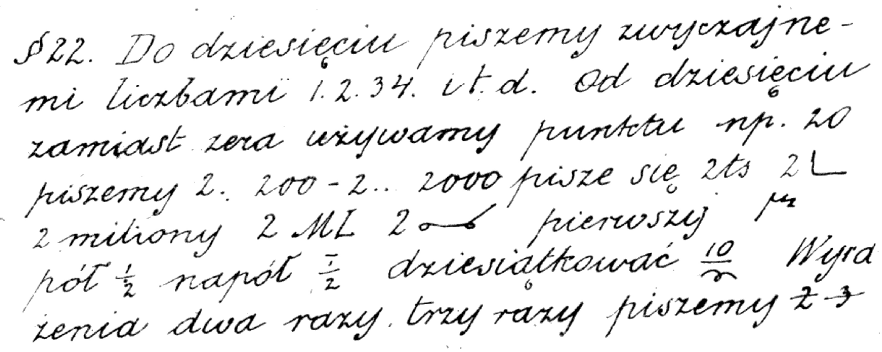 § 22. Do dziesięciu piszemy zwyczajne-
mi liczbami 1.2.34. i t. d. Od dziesięciu
zamiast zera używamy punktu np. 20
piszemy 2. 200 - 2.. 2000 pisze się 2ts 2
2 miliony 2 ML 2 pierwszy
pół ½ napół ½ dziesiątkować 10 Wyra
żenia dwa razy, trzy razy piszemy 2 3